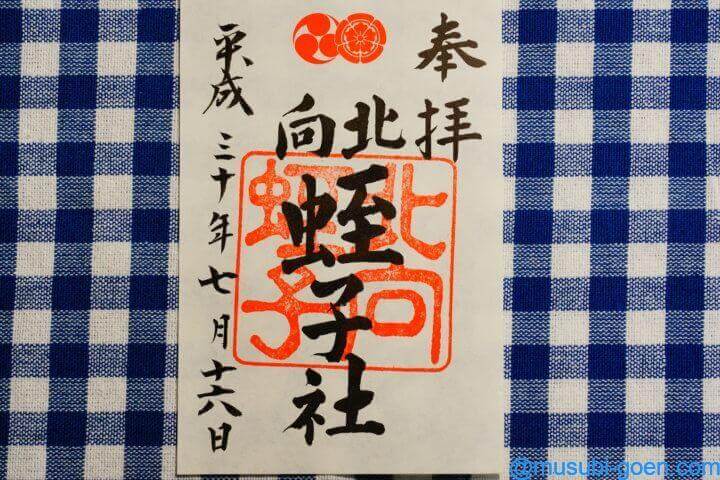 奉拝
北向
蛭子社
平成三十年七月十六日
北向
蛭子
@musubi-goen.com